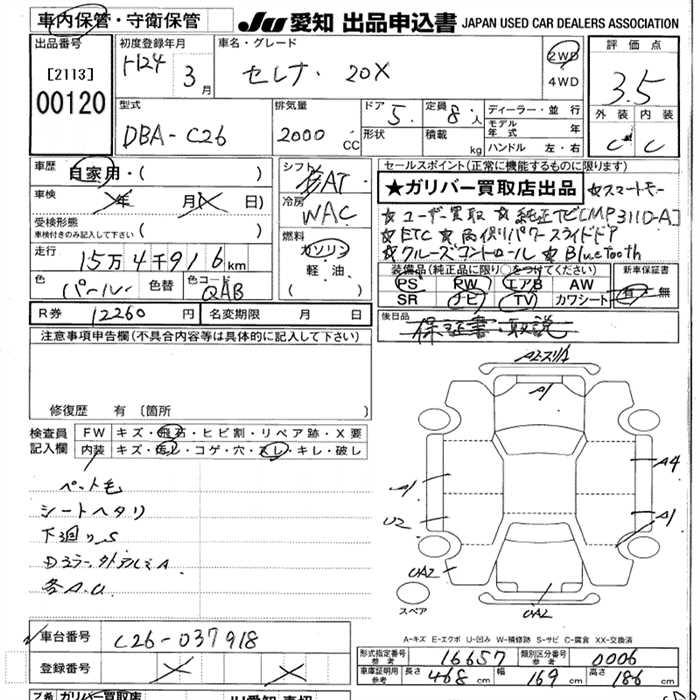 車内保管・守衛保管
JU 愛知 出品申込書 JAPAN USED CAR DEALERS ASSOCIATION
出品番号 [2113] 00120
初度登録年月 H24 3月
車名・グレード セレナ 20X
2WD 4WD
評価点 3.5
外装 C 内装 C
型式 DBA-C26
排気量 2000 CC
ドア 5 形状
定員 8人 積載 kg
ディーラー・並行
モデル年式 年
ハンドル 左・右
車歴 自家用・( )
車検 年 月 日
受検形態
車検付きのみ記入して下さい ( )
走行 15万4千916km
色 パール 色替 色コード QAB
シフト AT
冷房 WAC
燃料 ガソリン 軽・油 ( )
セールスポイント(正常に機能するものに限ります)
★ガリバー買取店出品 ☆スマートキー
☆ユーザー買取 ☆純正TV[MP311D-A]
☆ETC ☆両側パワースライドドア
☆クルーズコントロール ☆Bluetooth
装備品(純正品に限り○をつけてください)
PS PW エアB AW
SR ナビ TV カワシート
新車保証書 有・無
R券 12260円 名変期限 月 日
後日品 保証書・取説
注意事項申告欄(不具合内容等は具体的に記入して下さい)
修復歴 有 [箇所 ]
検査員記入欄
FW キズ・飛石・ヒビ割・リペア跡・X要
内装 キズ・汚レ・コゲ・穴・スレ・キレ・破し
ペット毛
シートヘタリ
下廻りS
Dミラー外アルミA
各A.U
A1
A1
U2
A4
A1
UA2
UA2
スペア
A-キズ E-エクボ U-凹み W-補修跡 S-サビ C-腐食 XX-交換済
車台番号 C26-037918
登録番号
形式指定番号 参考 16657 類別区分番号 参考 0006
車庫証明用 参考 長さ 468cm 幅 169cm 高さ 186cm
ガリバー買取店
JU愛知